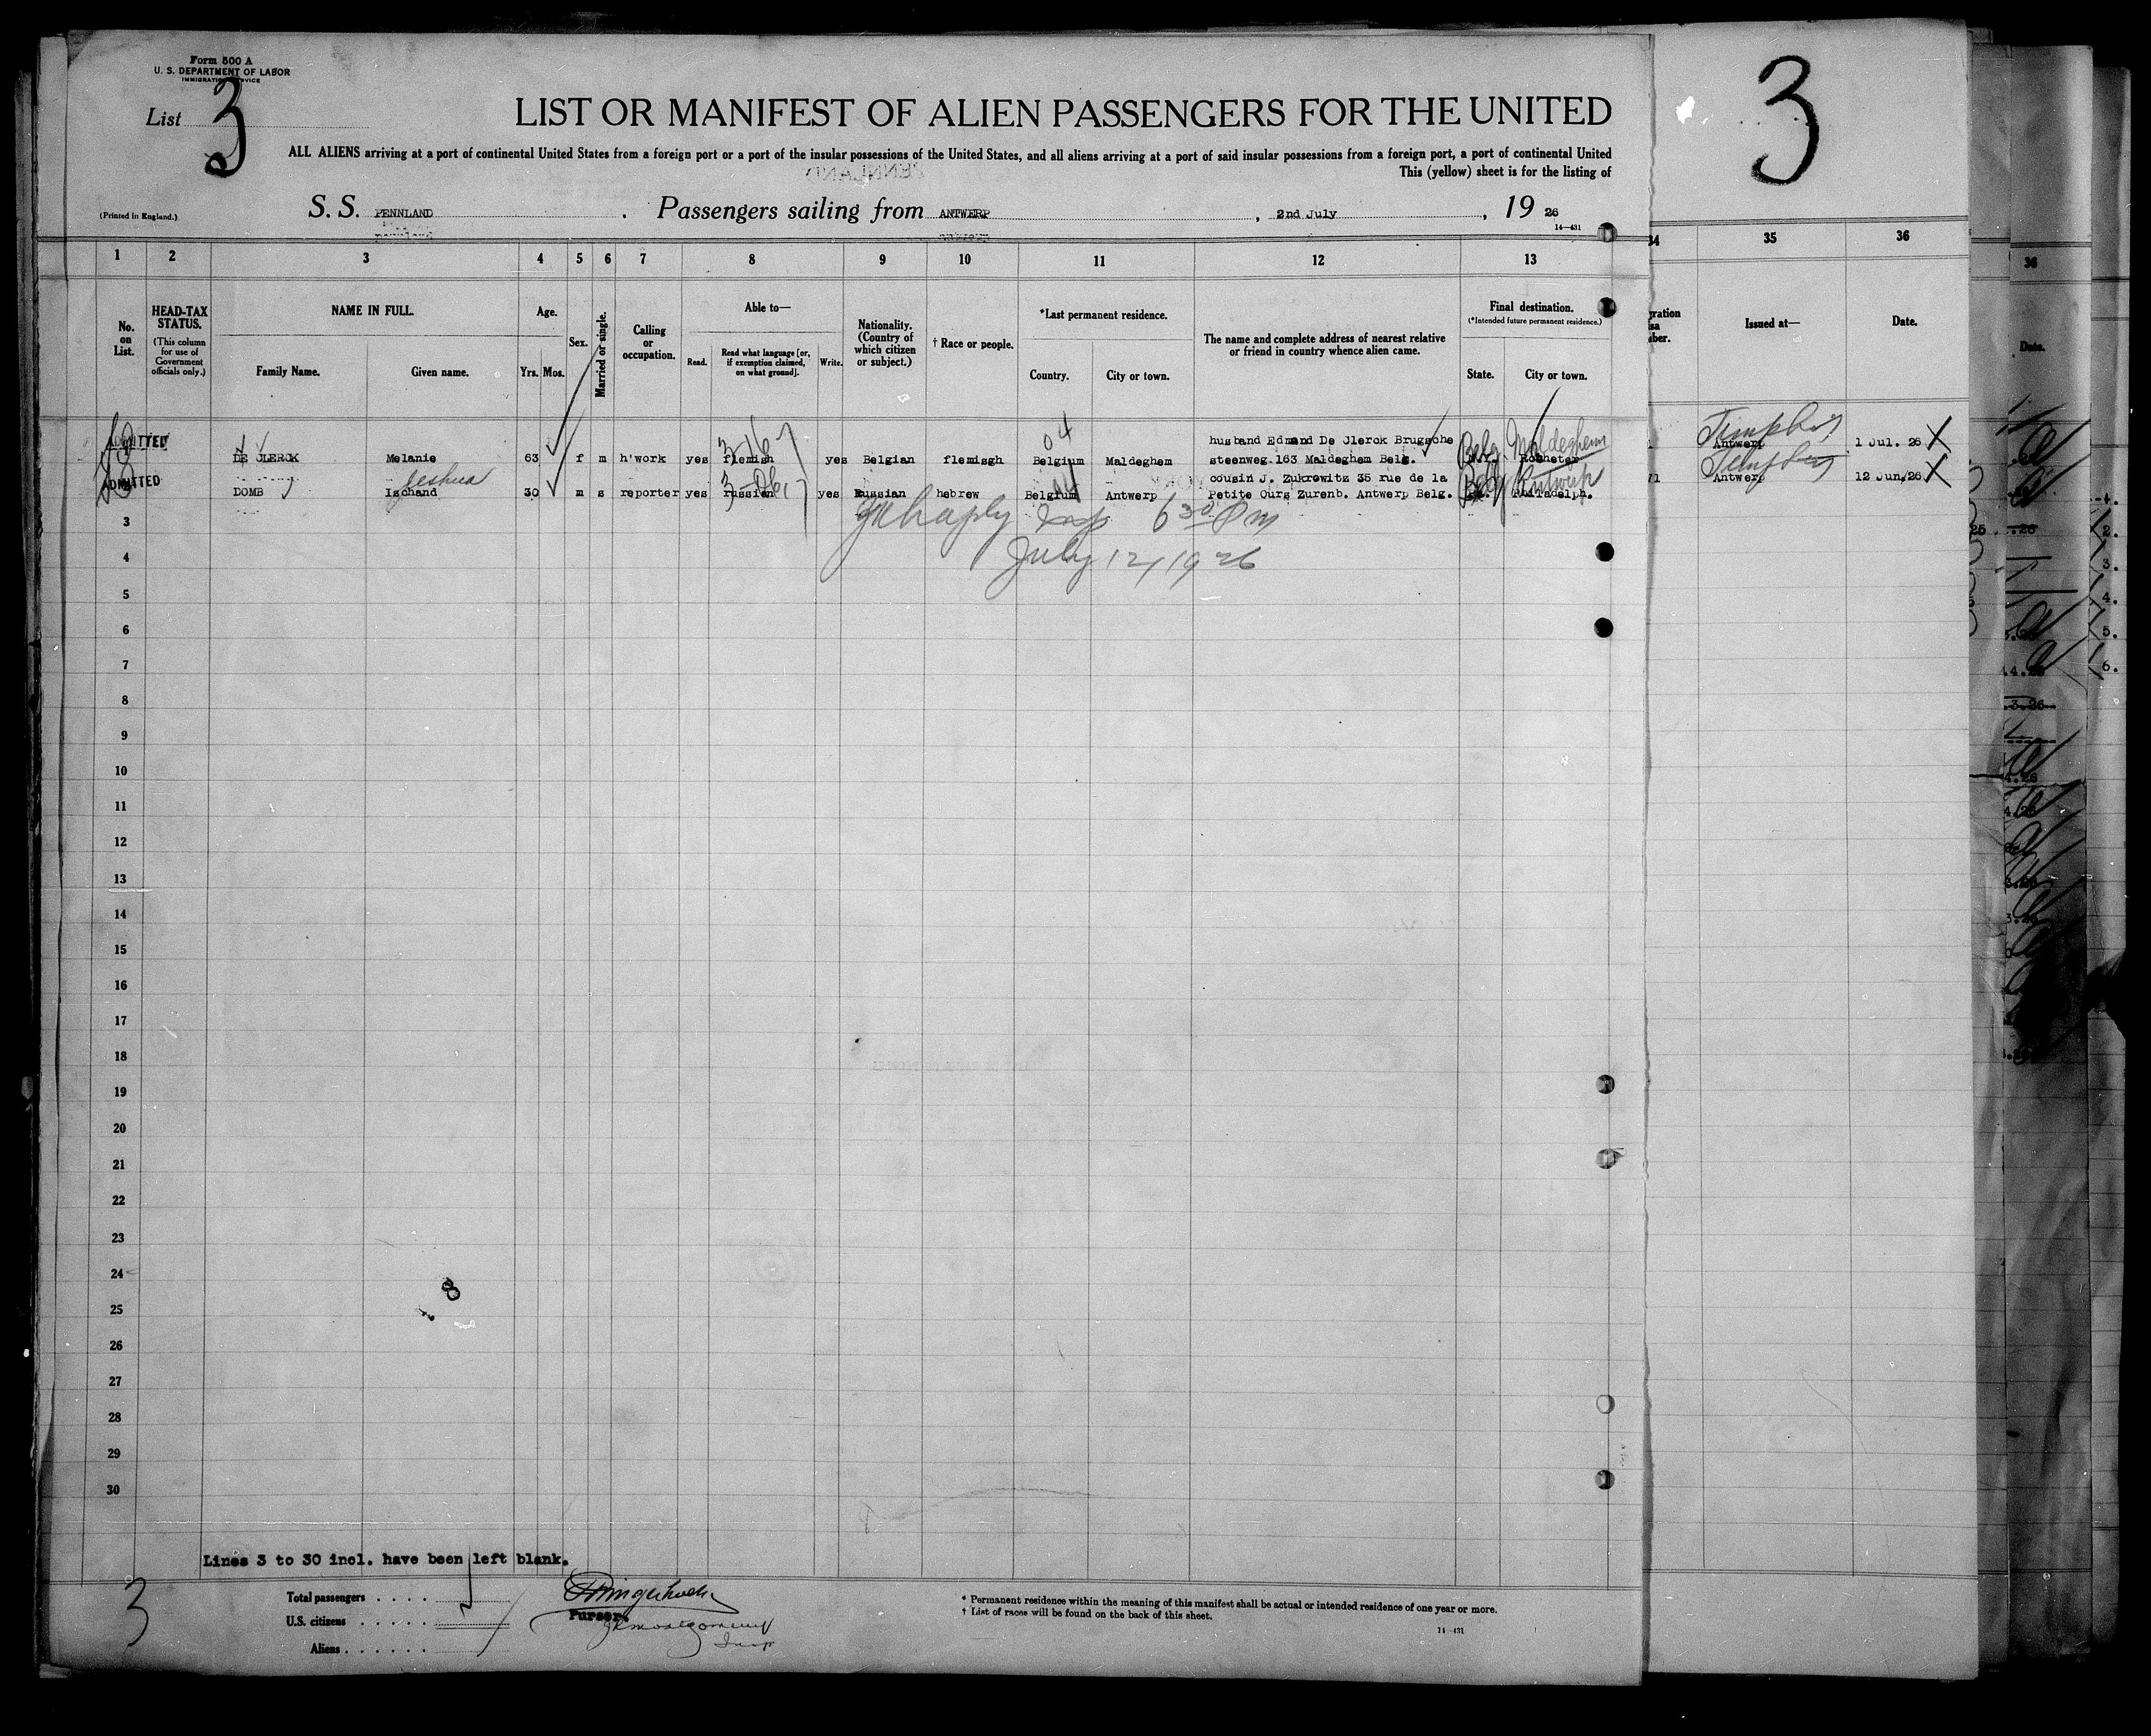 Form 500 A
U. S. DEPARTMENT OF LABOR
IMMIGRATION SERVICE
List 3
LIST OR MANIFEST OF ALIEN PASSENGERS FOR THE UNITED
ALL ALIENS arriving at a port of continental United States from a foreign port or a port of the insular possessions of the United States, and all aliens arriving at a port of said insular possessions from a foreign port, a port of continental United
This (yellow) sheet is for the listing of
(Printed in England.)
S. S. PENNLAND . Passengers sailing from ANTWERP , 2nd July , 19 26
14—431
3
1 2 3 4 5 6 7 8 9 10 11 12 13
34 35 36
36
No. on List.
HEAD-TAX STATUS.
(This column for use of Government officials only.)
NAME IN FULL.
Family Name. Given name.
Age.
Yrs. Mos.
Sex.
Married or single.
Calling or occupation.
Able to—
Read. Read what language [or, if exemption claimed, on what ground]. Write.
Nationality. (Country of which citizen or subject.)
† Race or people.
*Last permanent residence.
Country. City or town.
The name and complete address of nearest relative or friend in country whence alien came.
Final destination.
(*Intended future permanent residence.)
State. City or town.
Issued at—
Date.
Date.
ADMITTED
husband Edmand De Clerck Brugsche
Belg. Maldeghem
DE CLERCK Melanie 63 f m h'work yes flemish yes Belgian flemisgh Belgium Maldeghem steenweg.163 Maldeghem Belg. N.Y. Rocheter
Antwerp 1 Jul. 26 X
ADMITTED
Jeshua
cousin J. Zukrowitz 35 rue de la
Belg Antwerp
DOMB Ischand 30 m s reporter yes russian yes Russian hebrew Belgium Antwerp Petite Ours Zurenb. Antwerp Belg. Philadelph.
71 Antwerp 12 Jun. 26 X
3
Insp 6 30 Pm
4
July 12, 1926
5
6
7
8
9
10
11
12
13
14
15
16
17
18
19
20
21
22
23
24
25
26
27
28
29
30
Lines 3 to 30 incl. have been left blank.
3
Total passengers . . . .
U.S. citizens . . . . . .
Aliens . . . . . .
Purser.
* Permanent residence within the meaning of this manifest shall be actual or intended residence of one year or more.
† List of races will be found on the back of this sheet.
14—431